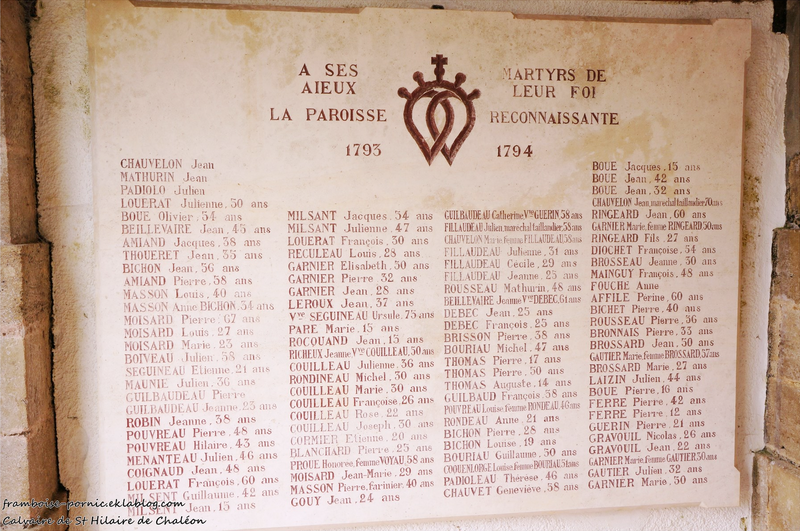 A SES MARTYRS DE
AIEUX LEUR FOI
LA PAROISSE RECONNAISSANTE
1793 1794
CHAUVELON Jean
MATHURIN Jean
PADIOLO Julien
LOUERAT Julienne.50 ans
BOUE Olivier.54 ans
BEILLEVAIRE Jean.45 ans
AMIAND Jacques.38 ans
THOUERET Jean.33 ans
BICHON Jean.36 ans
AMIAND Pierre.58 ans
MASSON Louis.40 ans
MASSON Anne BICHON.54 ans
MOISARD Pierre.67 ans
MOISARD Louis.27 ans
MOISARD Marie.23 ans
BOIVEAU Julien.38 ans
SEGUINEAU Etienne.21 ans
MAUNIE Julien.36 ans
GUILBAUDEAU Pierre
GUILBAUDEAU Jeanne.25 ans
ROBIN Jeanne.38 ans
POUVREAU Pierre.48 ans
POUVREAU Hilaire.43 ans
MENANTEAU Julien.46 ans
COIGNAUD Jean.48 ans
LOUERAT François.60 ans
MILSENT Guillaume.42 ans
MILSENT Jean.15 ans
MILSANT Jacques.54 ans
MILSANT Julienne.47 ans
LOUERAT François.30 ans
RECULEAU Louis.28 ans
GARNIER Elisabeth.50 ans
GARNIER Pierre 32 ans
GARNIER Jean.28 ans
LEROUX Jean.37 ans
Vve SEGUINEAU Ursule.75 ans
PARE Marie.15 ans
ROCOUAND Jean.15 ans
RICHEUX Jeanne Vve COUILLEAU.50 ans
COUILLEAU Julienne.36 ans
RONDINEAU Michel.30 ans
COUILLEAU Marie.30 ans
COUILLEAU Françoise.26 ans
COUILLEAU Rose.22 ans
COUILLEAU Joseph.30 ans
CORMIER Etienne.20 ans
BLANCHARD Pierre.25 ans
PROUE Honorée, femme VOYAU.58 ans
MOISARD Jean-Marie.29 ans
MASSON Pierre, farinier.40 ans
GOUY Jean.24 ans
GUILBAUDEAU Catherine Vve GUERIN.58 ans
FILLAUDEAU Julien, marechal taillandier.58 ans
CHAUVELON Marie femme FILLAUDEAU 58 ans
FILLAUDEAU Julienne.31 ans
FILLAUDEAU Cécile.29 ans
FILLAUDEAU Jeanne.25 ans
ROUSSEAU Mathurin.48 ans
BEILLEVAIRE Jeanne Vve DEBEC.61 ans
DEBEC Jean.25 ans
DEBEC François.25 ans
BRISSON Pierre.38 ans
BOURIAU Michel.47 ans
THOMAS Pierre.17 ans
THOMAS Pierre.50 ans
THOMAS Auguste.14 ans
GUILBAUD François.58 ans
POUVREAU Louise, femme RONDEAU.46 ans
RONDEAU Anne.21 ans
BICHON Pierre.28 ans
BICHON Louise.19 ans
BOURIAU Guillaume.50 ans
COQUENLORGE Louise, femme BOURIAU 51 ans
PADIOLEAU Thérèse.46 ans
CHAUVET Geneviève.58 ans
BOUE Jacques.15 ans
BOUE Jean.42 ans
BOUE Jean.32 ans
CHAUVELON Jean, marechal taillandier 70 ans
RINGEARD Jean.60 ans
GARNIER Marie, femme RINGEARD 50 ans
RINGEARD Fils.27 ans
DIOCHET Françoise.54 ans
BROSSEAU Jeanne.30 ans
MAINGUY François.48 ans
FOUCHÉ Anne
AFFILE Perine.60 ans
BICHET Pierre.40 ans
ROUSSEAU Pierre.36 ans
BRONNAIS Pierre.33 ans
BROSSARD Jean.50 ans
GAUTIER Marie, femme BROSSARD.57 ans
BROSSARD Marie.27 ans
LAIZIN Julien.44 ans
BOUE Pierre.16 ans
FERRE Pierre.42 ans
FERRE Pierre.12 ans
GUERIN Pierre.21 ans
GRAVOUIL Nicolas.26 ans
GRAVOUIL Jean.22 ans
GARNIER Marie, femme GAUTIER.50 ans
GAUTIER Julien.32 ans
GARNIER Marie.50 ans
framboise-pornic.eklablog.com
Calvaire de St Hilaire de Chaléon